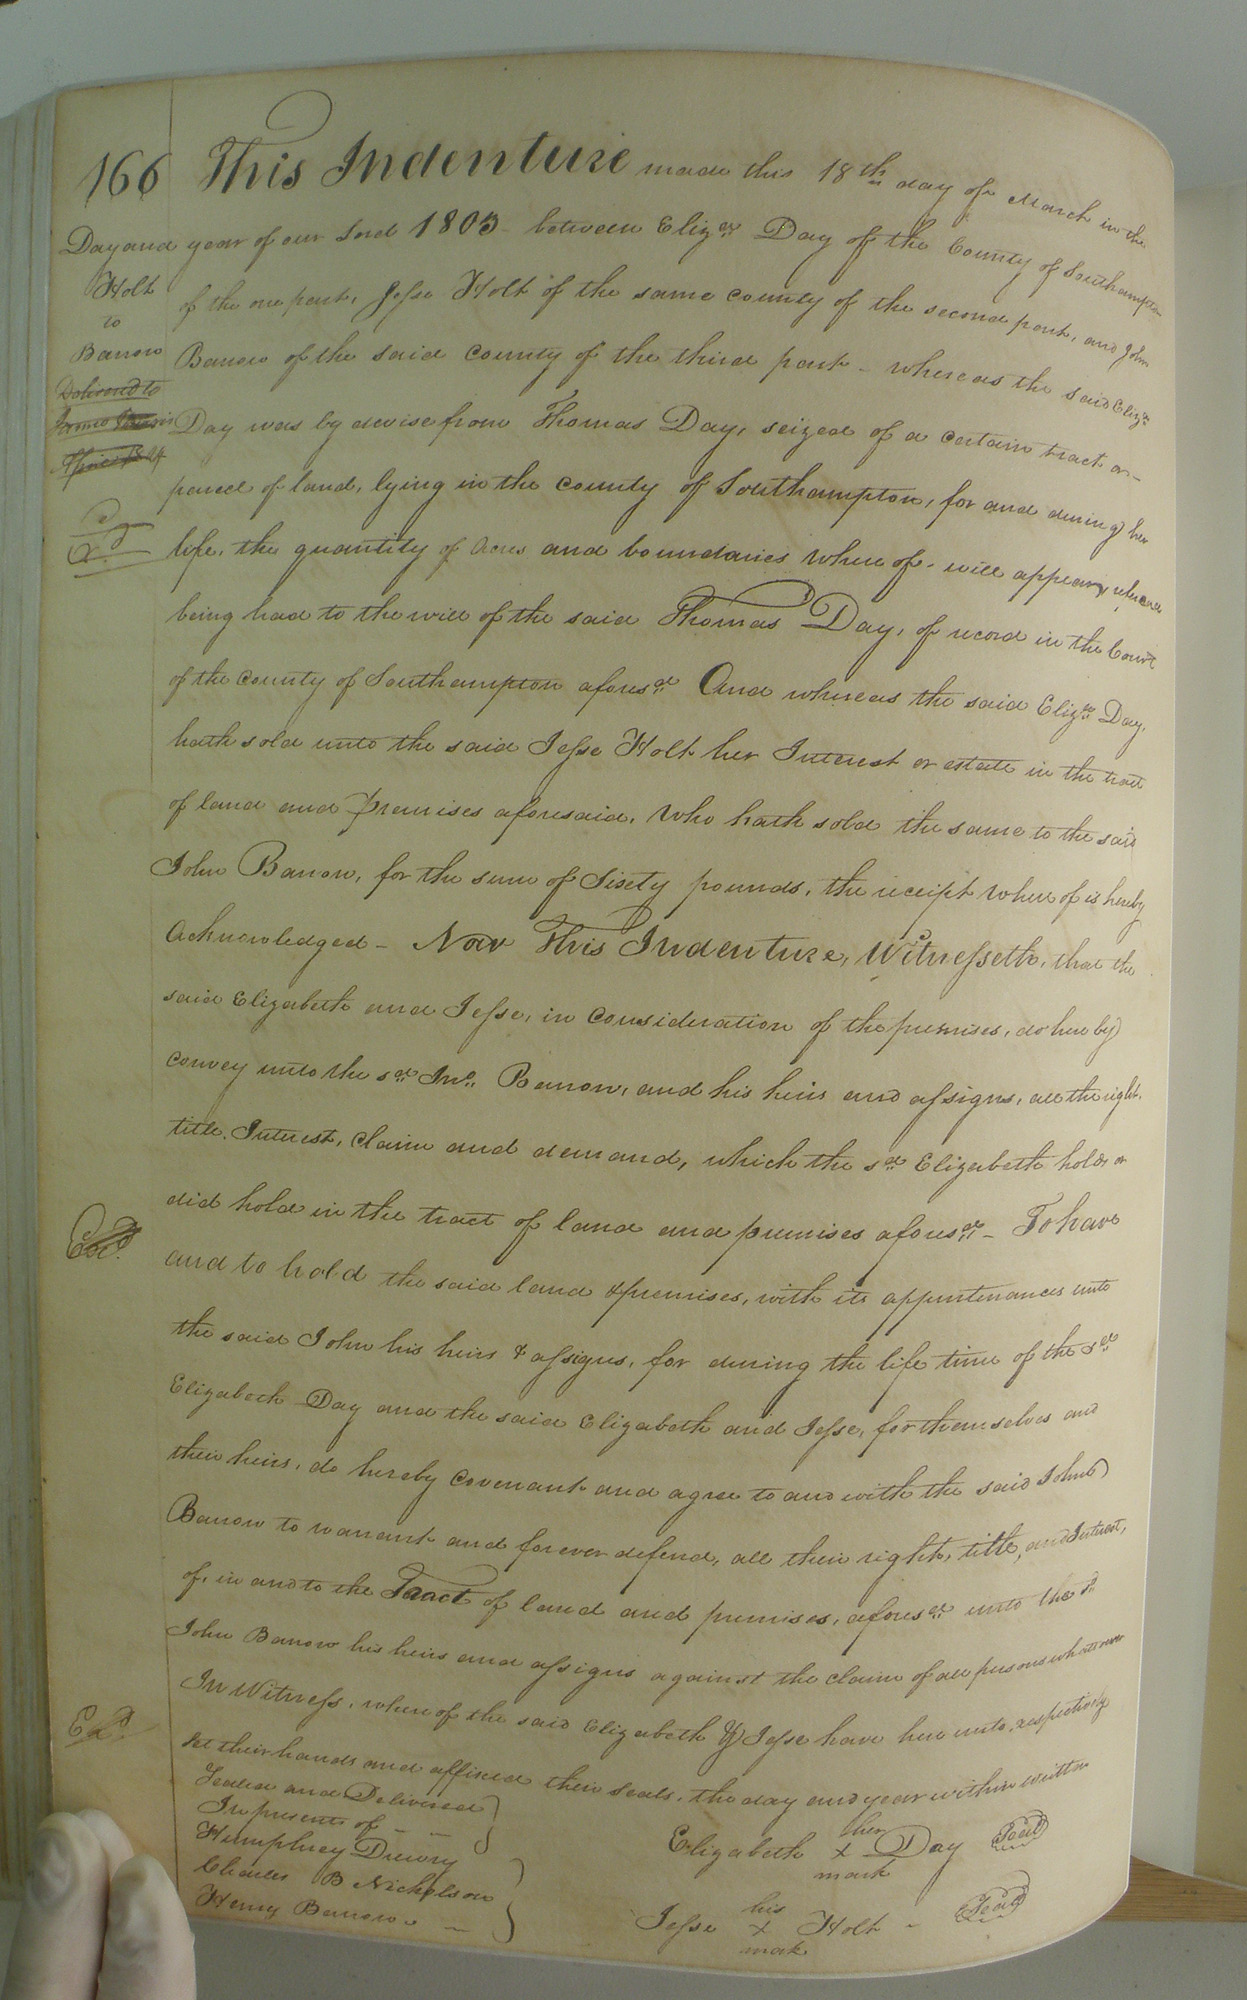 166 This Indenture made this 18th day of March in the
Day and year of our Lord 1805 - between Elizath Day of the County of Southampton
Holt
to
Barrow
of the one part, Jesse Holt of the same county of the second part, and John
Barrow of the said County of the third part - whereas the said Elizath
Delivered to
April 1824
Day was by devise from Thomas Day, seized of a certain tract or
parcel of land, lying in the County of Southampton, for and during her
life, the quantity of acres and boundaries where of will appear, reference
being had to the will of the said Thomas Day, of record in the Court
of the County of Southampton aforesd And whereas the said Elizath Day,
hath sold unto the said Jesse Holt her Interest or estate in the tract
of land and premises aforesaid, who hath sold the same to the said
John Barrow, for the sum of Sixty pounds, the receipt where of is hereby
Acknowledged - Now This Indenture, Witnesseth, that the
said Elizabeth and Jesse, in Consideration of the premises, do hereby
Convey unto the sd Jno. Barrow, and his heirs and assigns, all the right,
title, Interest, Claim and demand, which the sd Elizabeth holds or
did hold in the tract of land and premises aforesd - To have
Exd.
and to hold the said land & premises, with its appurtenances unto
the said John his heirs & assigns, for during the life time of the sd
Elizabeth Day and the said Elizabeth and Jesse, for themselves and
their heirs, do hereby Covenant and agree to and with the said John
Barrow to warrant and forever defend, all their right, title, and Interest,
of, in and to the Tract of land and premises, aforesd unto the sd
John Barrow his heirs and assigns against the claim of all persons whatsoever
In Witness, where of the said Elizabeth & Jesse have here unto, respectively
Exd.
set their hands and affixed their seals, the day and year within written
Sealed and Delivered
In presents of - -
Humphrey Drewry
Charles B Nicholson
Henry Barrow -
Elizabeth her x mark Day Seal
Jesse his x mark Holt - Seal